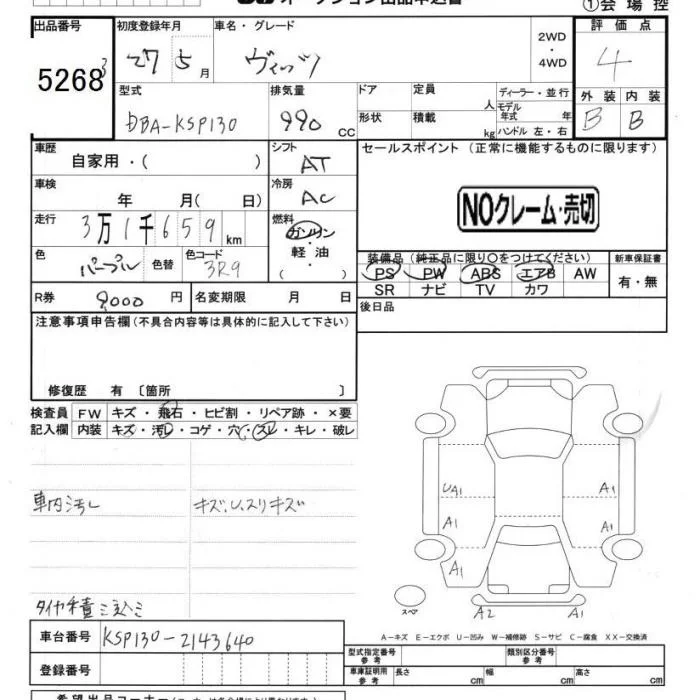 オークション出品申込書 ①会場控
出品番号 初度登録年月 車名・グレード 評価点
5268 3 27 5月 ヴィッツ 2WD・4WD 4
型式 排気量 ドア 定員 人 ディーラー・並行 外装 内装
DBA-KSP130 990 CC 形状 積載 kg モデル年式 年 B B
ハンドル 左・右
車歴 シフト セールスポイント(正常に機能するものに限ります)
自家用・( ) AT
車検 年 月( 日) 冷房 AC NOクレーム・売切
走行 3万1千659km 燃料 ガソリン
軽油
( )
色 パープル 色替 色コード 3R9
装備品(純正品に限り○をつけてください) 新車保証書
PS PW ABS エアB AW 有・無
SR ナビ TV カワ
R券 9000円 名変期限 月 日 後日品
注意事項申告欄(不具合内容等は具体的に記入して下さい)
修復歴 有〔箇所 〕
検査員 FW キズ・飛石・ヒビ割・リペア跡・×要
記入欄 内装 キズ・汚レ・コゲ・穴・スレ・キレ・破レ
車内汚レ キズ、U、スリキズ
UA1 A1
A1 A1
A1 A1
スペア A2 A1
A－キズ E－エクボ U－凹み W－補修跡 S－サビ C－腐食 XX－交換済
車台番号 KSP130-2143640
型式指定番号 参考 類別区分番号 参考
登録番号 車庫証明用 参考 長さ cm 幅 cm 高さ cm
希望出品コーナー